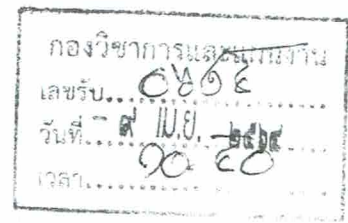 กองวิชาการและแผนงาน
เลขรับ.. ๐๖๑๔
วันที่ - ๙ เม.ย. ๒๕๖๔
เวลา ๑๐ ๔๐